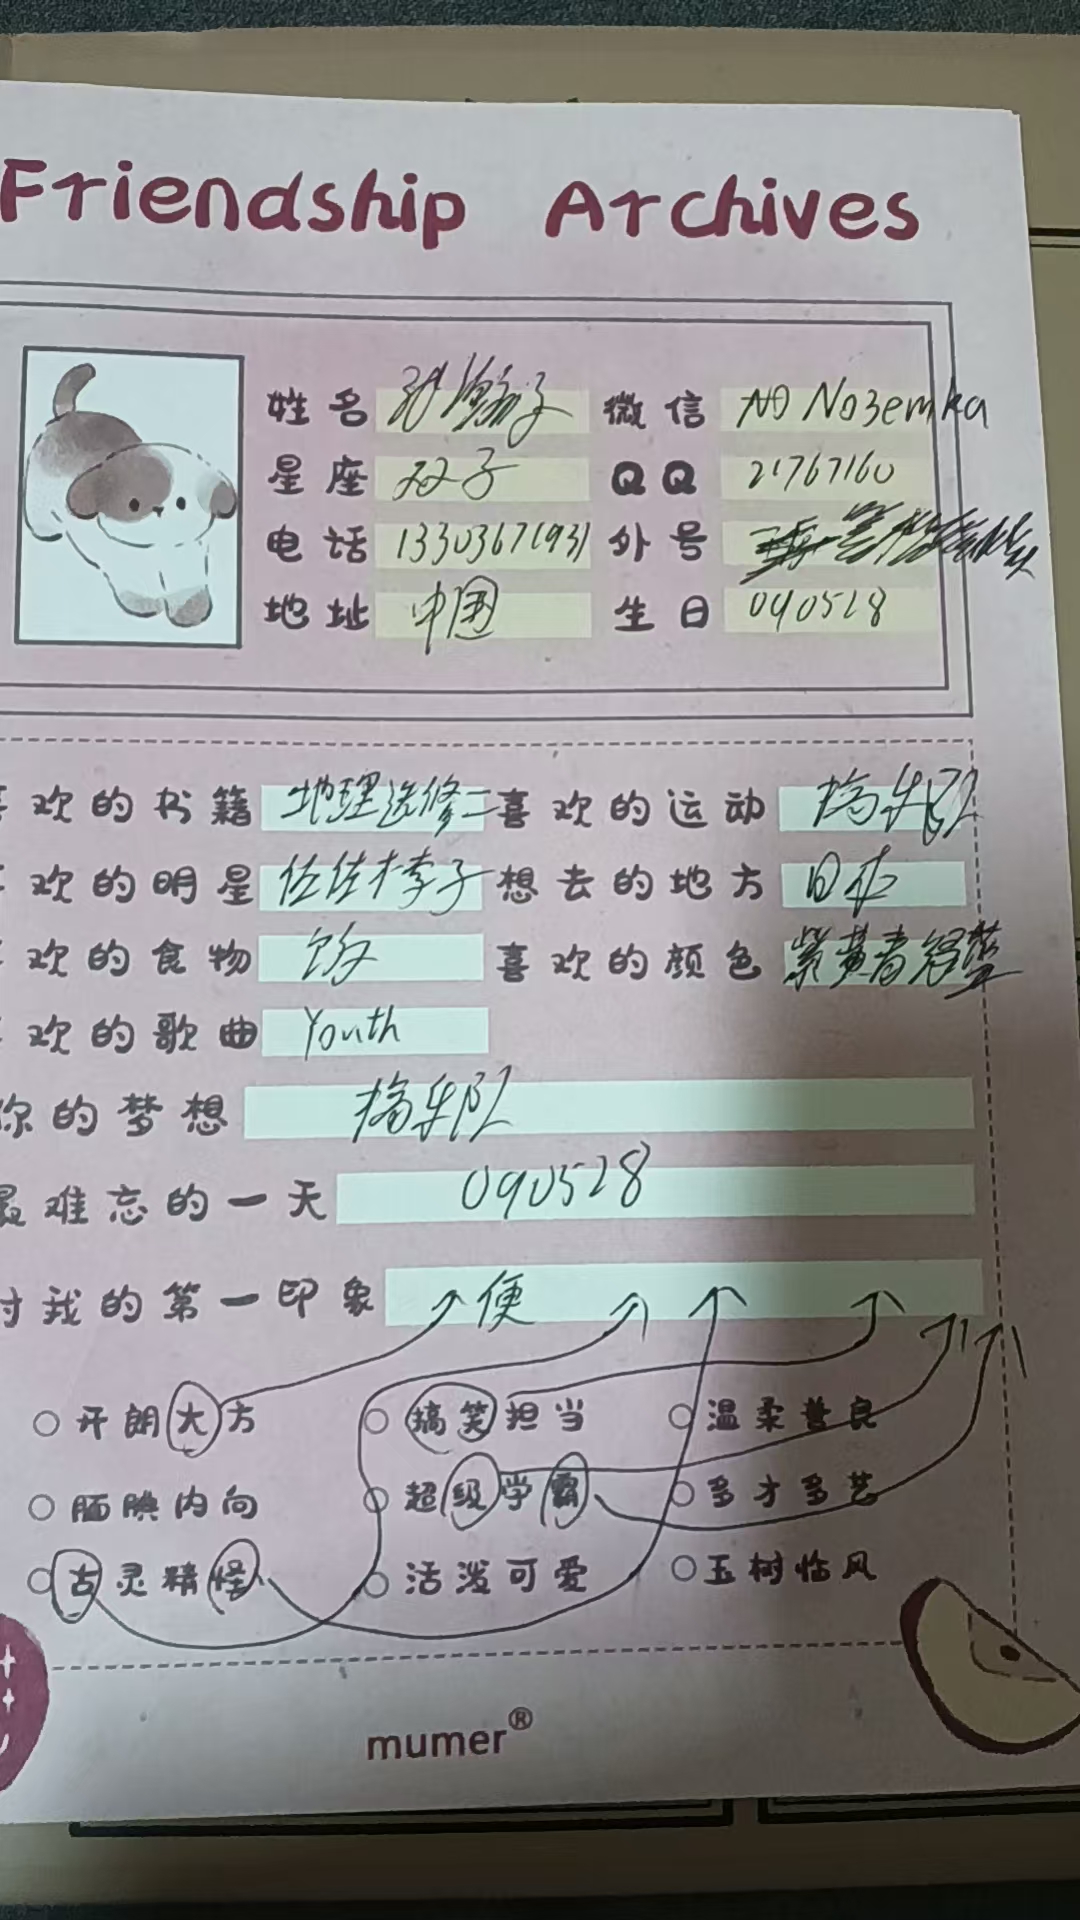 Friendship Archives
姓名 张瀚子 微信 NO No3emka
星座 双子 QQ 21767160
电话 13303671931 外号
地址 中国 生日 090528
欢的书籍 地理选修二 喜欢的运动 搞乐队
欢的明星 伍佳 李子 想去的地方 日本
欢的食物 饭 喜欢的颜色 紫黄青
欢的歌曲 Youth
你的梦想 搞乐队
最难忘的一天 090528
对我的第一印象 便
开朗大方 搞笑担当 温柔善良
腼腆内向 超级学霸 多才多艺
古灵精怪 活泼可爱 玉树临风
mumer®